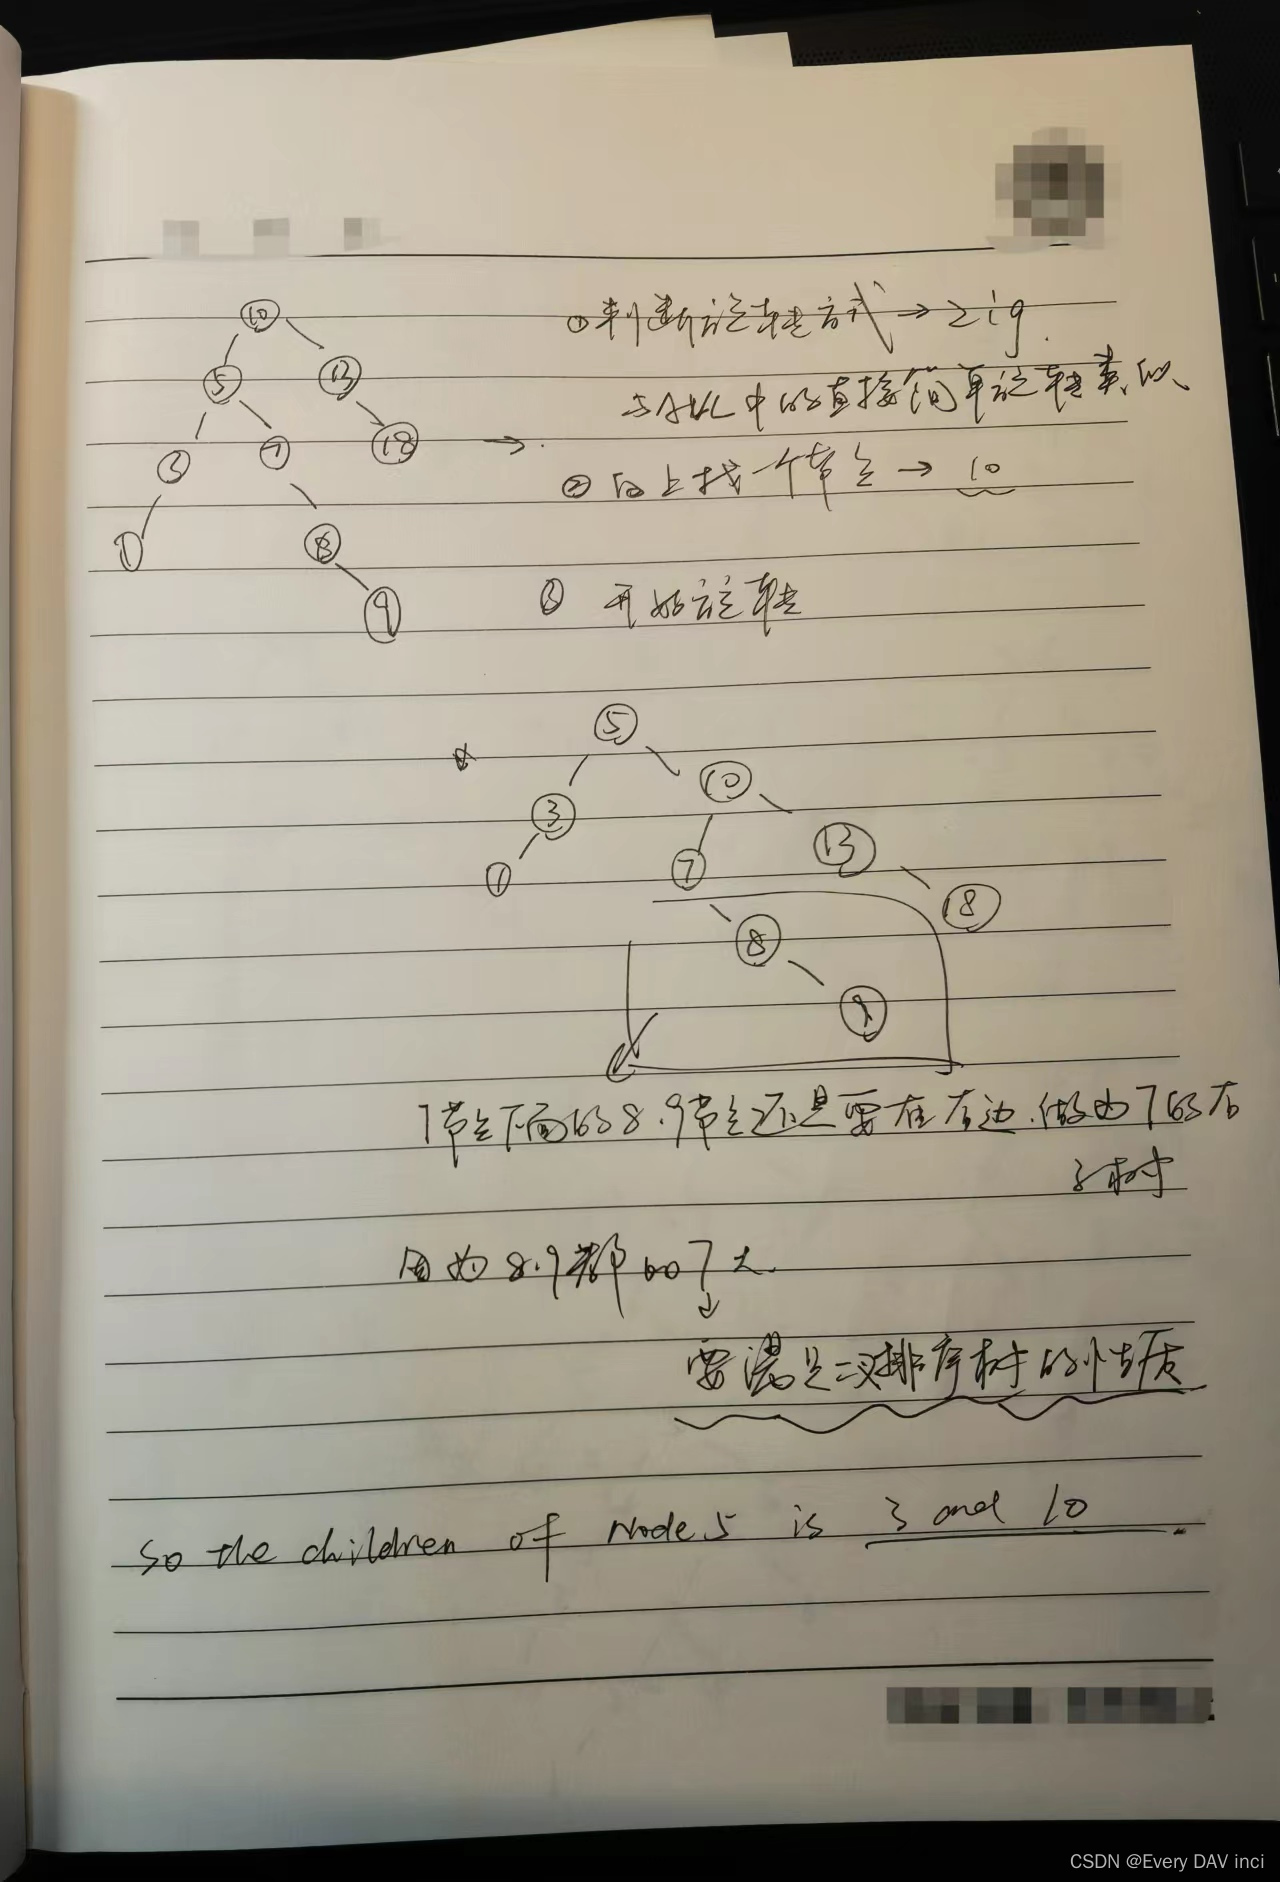 10
①判断旋转方式→zig.
5 13
与AVL中的直接简单旋转类似
3 7 18 →
②向上找一个节点→10
1 8
9 ③ 开始旋转
5
3 10
1 7 13
18
8
9
7节点下面的8.9节点还是要在右边.做为7的右
子树
因为8.9都比7大.
↓
要满足二叉排序树的性质
So the children of Node 5 is 3 and 10.
CSDN @Every DAV inci